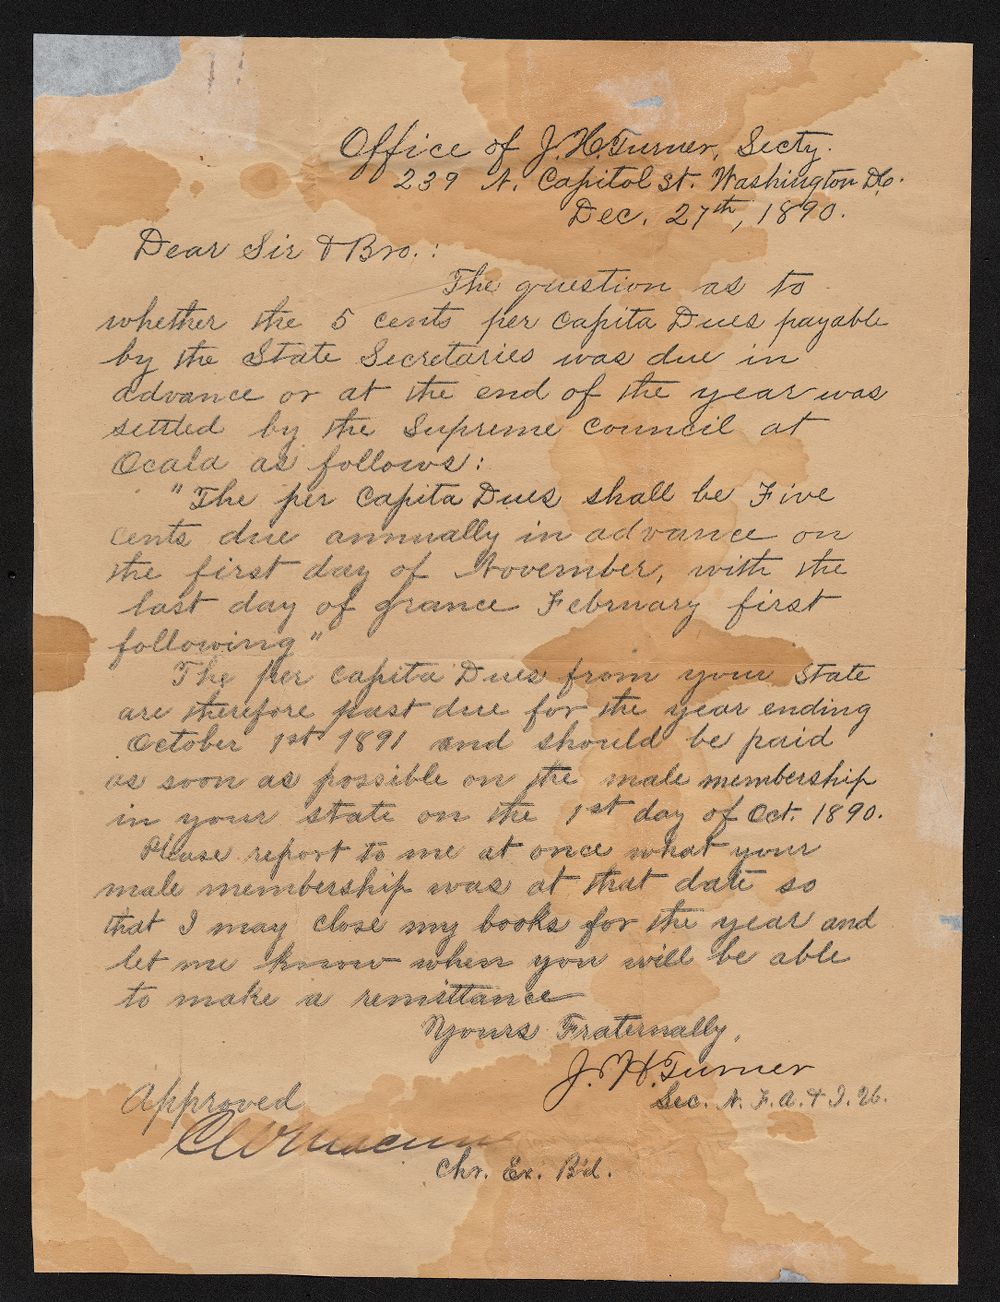 Office of J. H. Turner, Secty.
239 N. Capitol St. Washington D.C.
Dec. 27th, 1890.
Dear Sir & Bro.:
The question as to
whether the 5 cents per capita Dues payable
by the State Secretaries was due in
advance or at the end of the year was
settled by the Supreme Council at
Ocala as follows:
"The per capita Dues shall be Five
cents due annually in advance on
the first day of November, with the
last day of grance February first
following"
The per capita Dues from your State
are therefore past due for the year ending
October 1st 1891 and should be paid
as soon as possible on the male membership
in your state on the 1st day of Oct. 1890.
Please report to me at once what your
male membership was at that date so
that I may close my books for the year and
let me know when you will be able
to make a remittance
Yours Fraternally,
J. H. Turner
Sec. N. F. A. & I. U.
Approved
C W Macune
Chr. Ex. B'd.